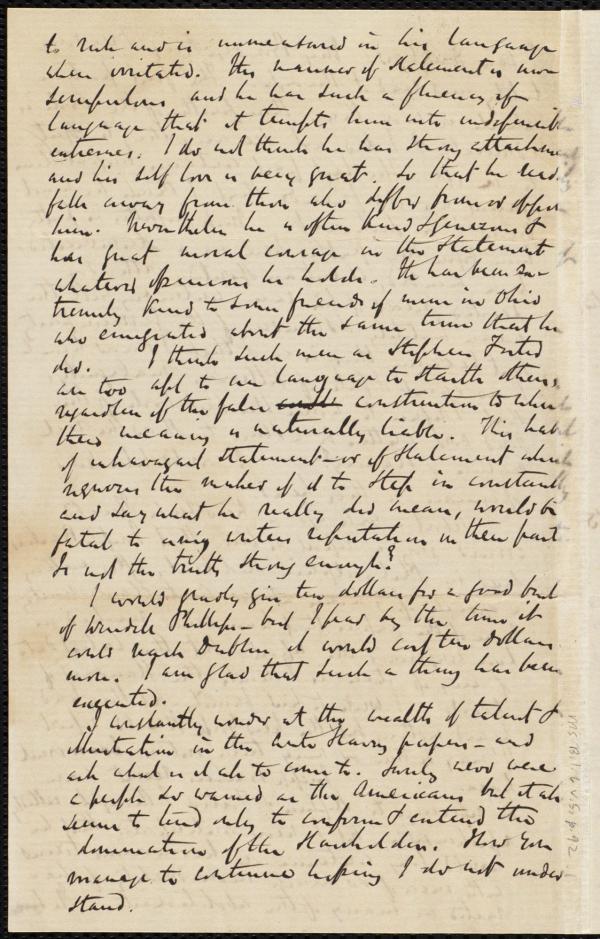 to rule and is unmeasured in his language
when irritated. His manner of statement is non
scrupulous and he has such a fluency of
language that it tempts him into indefensible
extremes. I do not think he has strong attachmen
and his self love is very great. So that he
falls away from those who differ from or oppose
him. Nevertheless he is often kind & generous &
has great moral courage in the statement
whatever opinions he holds. He has been ex-
tremely kind to some friends of mine in Ohio
who emigrated about the same time that he
did. I think such men as Stephen Foster
are too apt to use language to startle others,
regardless of the false construction to which
their meaning is naturally liable. This habit
of extravagant statement - or of statement which
requires the maker of it to step in constantly
and say what he really did mean, would be
fatal to any writers reputation in these parts
Is not the truth strong enough?
I would gladly give ten dollars for a good bust
of Wendell Phillips - but I fear by the time it
could reach Dublin it would cost ten dollars
more. I am glad that such a thing has been
executed.
I constantly wonder at the wealth of talent &
illustration in the Anti Slavery papers - and
ask what is it all to come to. Surely never were
a people so warned as the Americans but it all
seems to tend only to confirm & extend the
domination of the Slaveholders. How you
manage to continue hoping I do not under
stand.